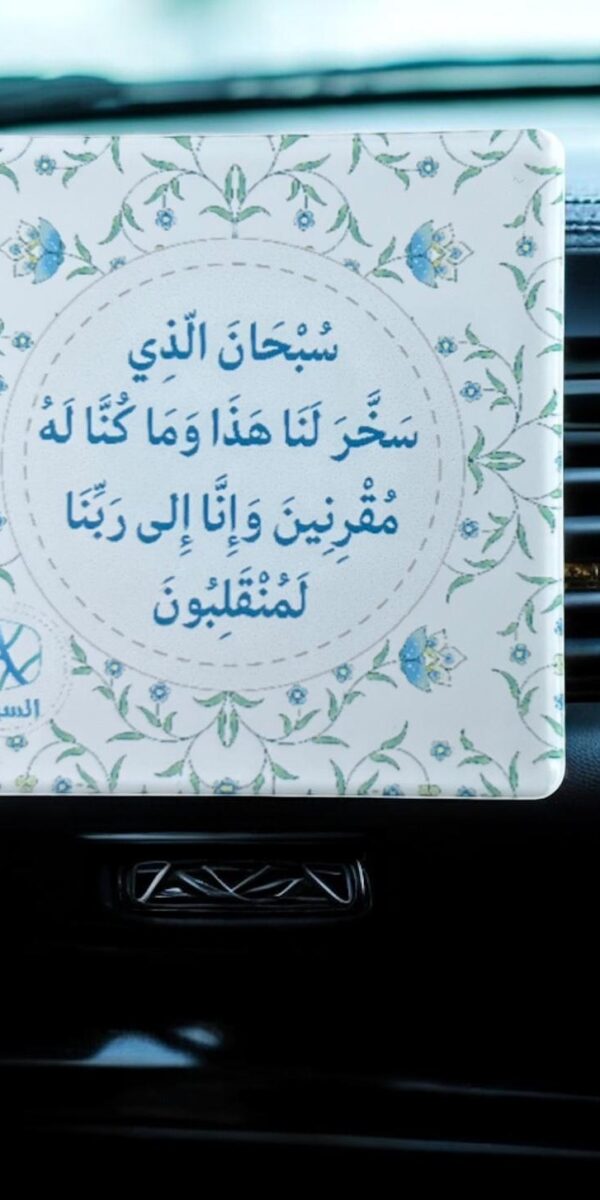 سُبْحَانَ الّذِي
سَخَّرَ لَنَا هَذَا وَمَا كُنَّا لَهُ
مُقْرِنِينَ وَإِنَّا إِلى رَبِّنَا
لَمُنْقَلِبُونَ